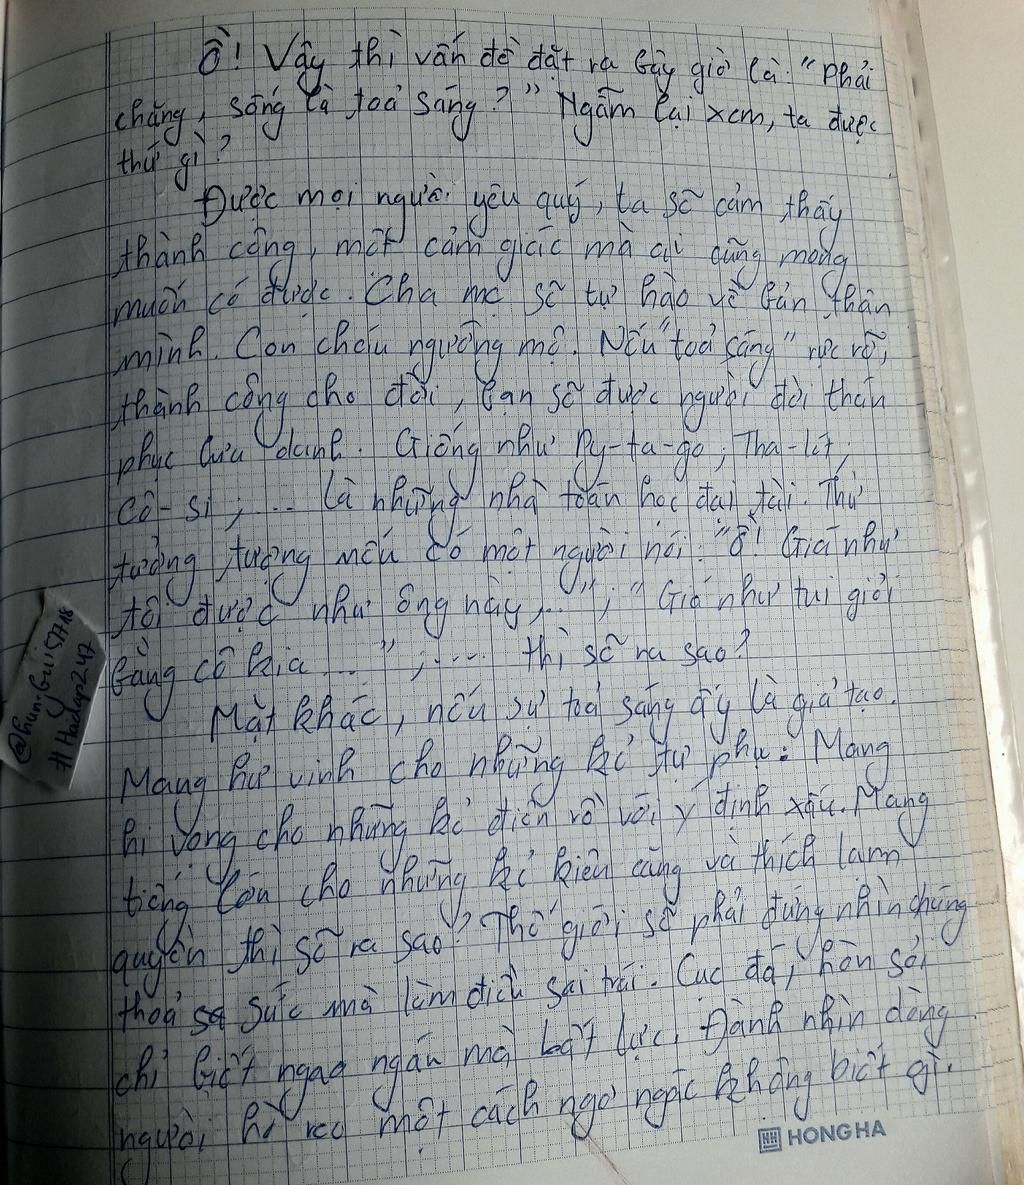 Ồ! Vậy thì vấn đề đặt ra bây giờ là: "Phải
chăng, sống là toả sáng?" Ngẫm lại xem, ta được
thứ gì?
Được mọi người yêu quý, ta sẽ cảm thấy
thành công, một cảm giác mà ai cũng mong
muốn có được. Cha mẹ sẽ tự hào về bản thân
mình. Con cháu ngưỡng mộ. Nếu "toả sáng" rực rỡ,
thành công cho đời, bạn sẽ được người đời thán
phục lưu danh. Giống như Py-ta-go; Tha-lét;
Cô-si;... là những nhà toán học đại tài. Thử
tưởng tượng nếu có một người nói: "Ồ! Giá như
tôi được như ông này,..."; "Giá như tui giỏi
bằng cô kia..."; .... thì sẽ ra sao?
Mặt khác, nếu sự toả sáng ấy là giả tạo.
Mang hư vinh cho những kẻ tự phụ. Mang
hi vọng cho những kẻ điên rồ với ý định xấu. Mang
tiếng lớn cho những kẻ kiên căng và thích lam
quyền thì sẽ ra sao? Thế giới sẽ phải đứng nhìn chúng
thoả sức mà làm điều sai trái. Cục đá, hòn sỏi
chỉ biết ngao ngán mà bất lực. Đành nhìn dòng
người hò reo một cách ngơ ngác không biết gì.
HH HONG HA
#Haidap247